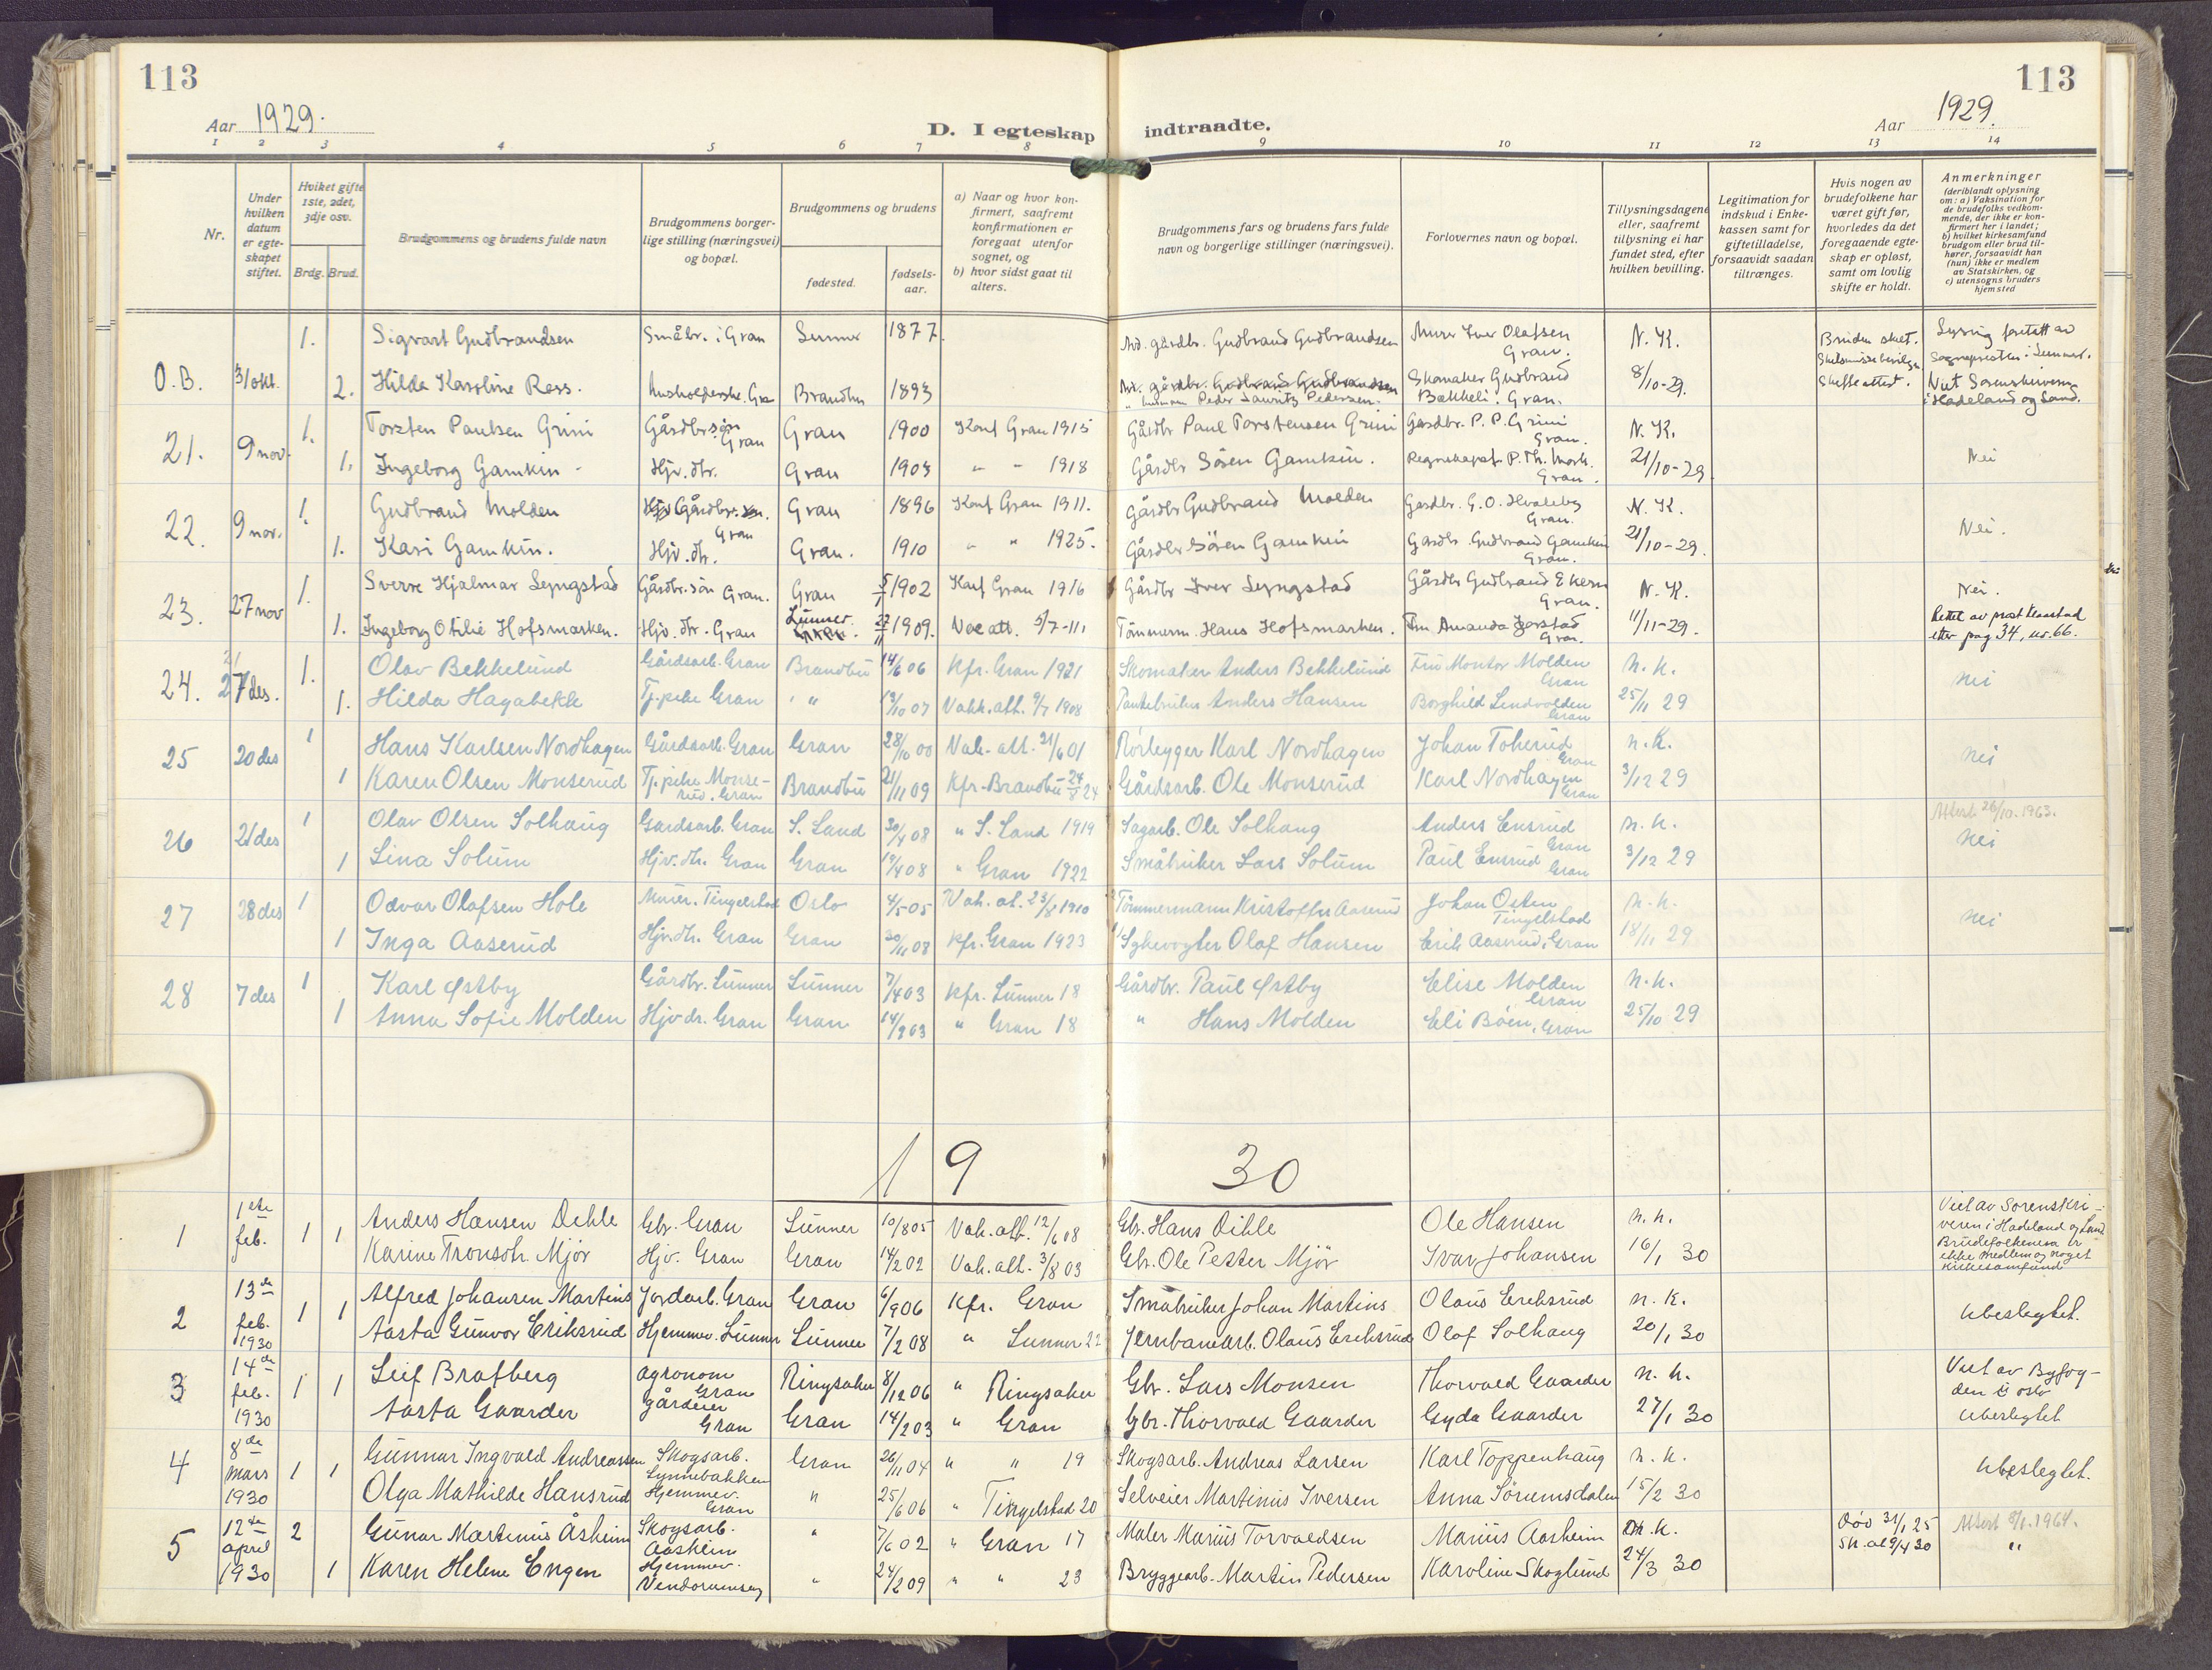 113
113
Aar 1929.
D. I egteskap indtraadte.
Aar 1929.
1 2 3 4 5 6 7 8 9 10 11 12 13 14
Nr.
Under hvilken datum er egteskapet stiftet.
Hvilket gifte 1ste, 2det, 3dje osv.
Brdg. Brud.
Brudgommens og brudens fulde navn
Brudgommens borgerlige stilling (næringsvei) og bopæl.
Brudgommens og brudens
fødested.
fødselsaar.
a) Naar og hvor konfirmert, saafremt konfirmationen er foregaat utenfor sognet, og
b) hvor sidst gaat til alters.
Brudgommens fars og brudens fars fulde navn og borgerlige stillinger (næringsvei).
Forlovernes navn og bopæl.
Tillysningsdagene eller, saafremt tillysning ei har fundet sted, efter hvilken bevilling.
Legitimation for indskud i Enkekassen samt for giftetilladelse, forsaavidt saadan tiltrænges.
Hvis nogen av brudefolkene har været gift før, hvorledes da det foregaaende egteskap er opløst, samt om lovlig skifte er holdt.
Anmerkninger
(deriblandt oplysning om: a) Vaksination for de brudefolks vedkommende, der ikke er konfirmert her i landet; b) hvilket kirkesamfund brudgom eller brud tilhører, forsaavidt han (hun) ikke er medlem av Statskirken, og c) utensogns bruders hjemsted
O.B. 31 okt. 1. Sigvart Gudbrandsen Småbr. i Gran Lunner 1877. gårdbr. Gudbrand Gudbrandsen Murer Iver Olafsen Gran. N. K. Bruden skilt. Lysing foretatt av Sogneprester i Lunner.
2. Hilda Karoline Ross. Husholderske. Gran Brandbu 1893 Peder Lauritz Pedersen. Skomaker Gudbrand Bækkeli. Gran. 8/10-29. Skifteattest. Viet Sorenskriveren i Hadeland og Land.
21. 9 nov. 1. Torsten Paulsen Grini Gårdbr. søn Gran Gran 1900 Konf Gran 1915 Gårdbr Paul Torstensen Grini Gardbr. P. P. Grini Gran. N. K.
1. Ingeborg Gamkin Hjv. dtr. Gran 1903 " " 1918 Gårdbr Sören Gamkin. P. Th. Mork. Gran. 21/10-29. Nei
22. 9 nov. 1. Gudbrand Molden Gårdbr. sn. Gran Gran 1896 Konf Gran 1911. Gårdbr Gudbrand Molden Gardbr. G. O. Hvaleby Gran. N. K.
1. Kari Gamkin. Hjv. dtr. Gran. 1910 " " 1925. Gårdbr Sören Gamkin Gardbr. Gudbrand Gamkin Gran. 21/10-29. Nei.
23. 27 nov 1. Sverre Hjalmar Lyngstad Gårdbr. sön Gran. Gran 5/1 1902 Konf Gran 1916 Gårdbr Iver Lyngstad Gårdbr Gudbrand Ekern Gran. N. K. Nei.
1. Ingeborg Otilie Hofsmarken. Hjv. dtr. Gran Lunner 27/11 1909. Vac att. 5/7-11. Tömmerm. Hans Hofsmarken. Fru Amanda Jorstad Gran. 11/11-29. Rettet av prest etter pag 34, nr. 66.
24. 21/27 des. 1. Olav Bekkelund Gårdsarb. Gran Brandbu 14/6 06 Kfr. Gran 1921 Skomaker Anders Bekkelund Fru Montør Molden Gran n. k.
1. Hilda Hagabekk Tj.pike Gran " " 13/10 07 Vakk. att. 9/7 1908 Anders Hansen Borghild Lindvolden Gran 25/11 29 nei
25 20 des 1 Hans Karlsen Nordhagen Gårdsarb. Gran Gran 28/10 00 Vak. att. 21/6 01 Rørlegger Karl Nordhagen Johan Tokerud Gran n. k.
1 Karen Olsen Monserud Tj.pike Monserud. Gran Brandbu 21/11 09 Kfr. Brandbu 24/8 24 Gårdsarb. Ole Monserud Karl Nordhagen Gran 3/12 29 nei
26 21 des 1 Olav Olsen Solhaug Gardsarb. Gran S. Land 30/4 08 " S. Land 1919 Sagarb. Ole Solhaug Anders Ensrud Gran n. k. Attest 26/10.1963.
1 Lina Solum Hjv. dtr. Gran Gran 19/4 08 " Gran 1922 Småbruker Lars Solum Paul Ensrud Gran 3/12 29 nei
27 28 des 1 Odvar Olafsen Hole Murer. Tingelstad Oslo 4/5 05 Vak. at. 23/8 1910 Tömmermann Kristoffer Aaserud Johan Osten Tingelstad n. k.
1 Inga Aaserud Hjv.dtr. Gran Gran 30/11 08 Kfr. Gran 1923 Olaf Hansen Erik Aaserud, Gran 18/11 29 nei
28 7 des 1 Karl Østby Gårdbr. Lunner Lunner 7/4 03 Kfr. Lunner 18 Gårdbr. Paul Østby Elise Molden Gran n. k.
1 Anna Sofie Molden Hjv dr. Gran Gran 14/2 03 " Gran 18 " Hans Molden Eli Böen, Gran 25/10 29
19 30
1 1ste feb. 1 1 Anders Hansen Dehle Gbr. Gran Lunner 10/8 05 Vak. att. 12/6 08 Gbr. Hans Dihle Ole Hansen n. k. Viet av Sorenskriveren i Hadeland og Land. Brudefolkenene er ikke medlem og noget kirkesamfund
Karine Tronsdtr. Mjör Hjv. Gran Gran 14/2 02 Vak. att. 3/8 03 Gbr. Ole Petter Mjör Ivar Johansen 16/1 30
2 13de feb. 1930 1 1 Alfred Johansen Martins Jordarb. Gran Gran 6/9 06 Kfr. Gran Småbruker Johan Martins Olaus Eriksrud n. k. Ubeslegtet.
Aasta Gunvor Eriksrud Hjemmev. Lunner Lunner 7/2 08 " Lunner 22 Jernbanearb. Olaus Eriksrud Olaf Solhaug 20/1 30
3 14de feb. 1930 1 1 Leif Brafberg agronom Gran Ringsaker 8/12 06 " Ringsaker Gbr. Lars Monsen Thorvald Gaarder n. k. Viet av Byfogden i Oslo
Aasta Gaarder gårdeier Gran Gran 14/2 03 " Gran Gbr. Thorvald Gaarder Gyda Gaarder 27/1 30 Ubeslegtet
4 8de mars 1930 1 1 Gunnar Ingvald Andreassen Skogsarb. Lynnebakken Gran 26/11 04 " " 19 Skogsarb. Andreas Larsen Karl Toppenhaug n. k. Ubeslegtet.
Olga Mathilde Hansrud Hjemmev. Gran " 25/6 06 " Tingelstad 20 Selveier Martinius Iversen Anna Sörumsdalen 15/2 30
5 12te april 1930 2 Gunar Martinius Åsheim Skogsarb. Aasheim " 7/6 02 " Gran 17 Maler Marius Torvaldsen Marius Aasheim n. k. Död 31/1 25 Sk. at 9/4 30 Attest 8/1.1964.
1 Karen Helene Engen Hjemmev. " 24/2 09 " " 23 Bryggearb. Martin Pedersen Karoline Skoglund 24/3 30 "